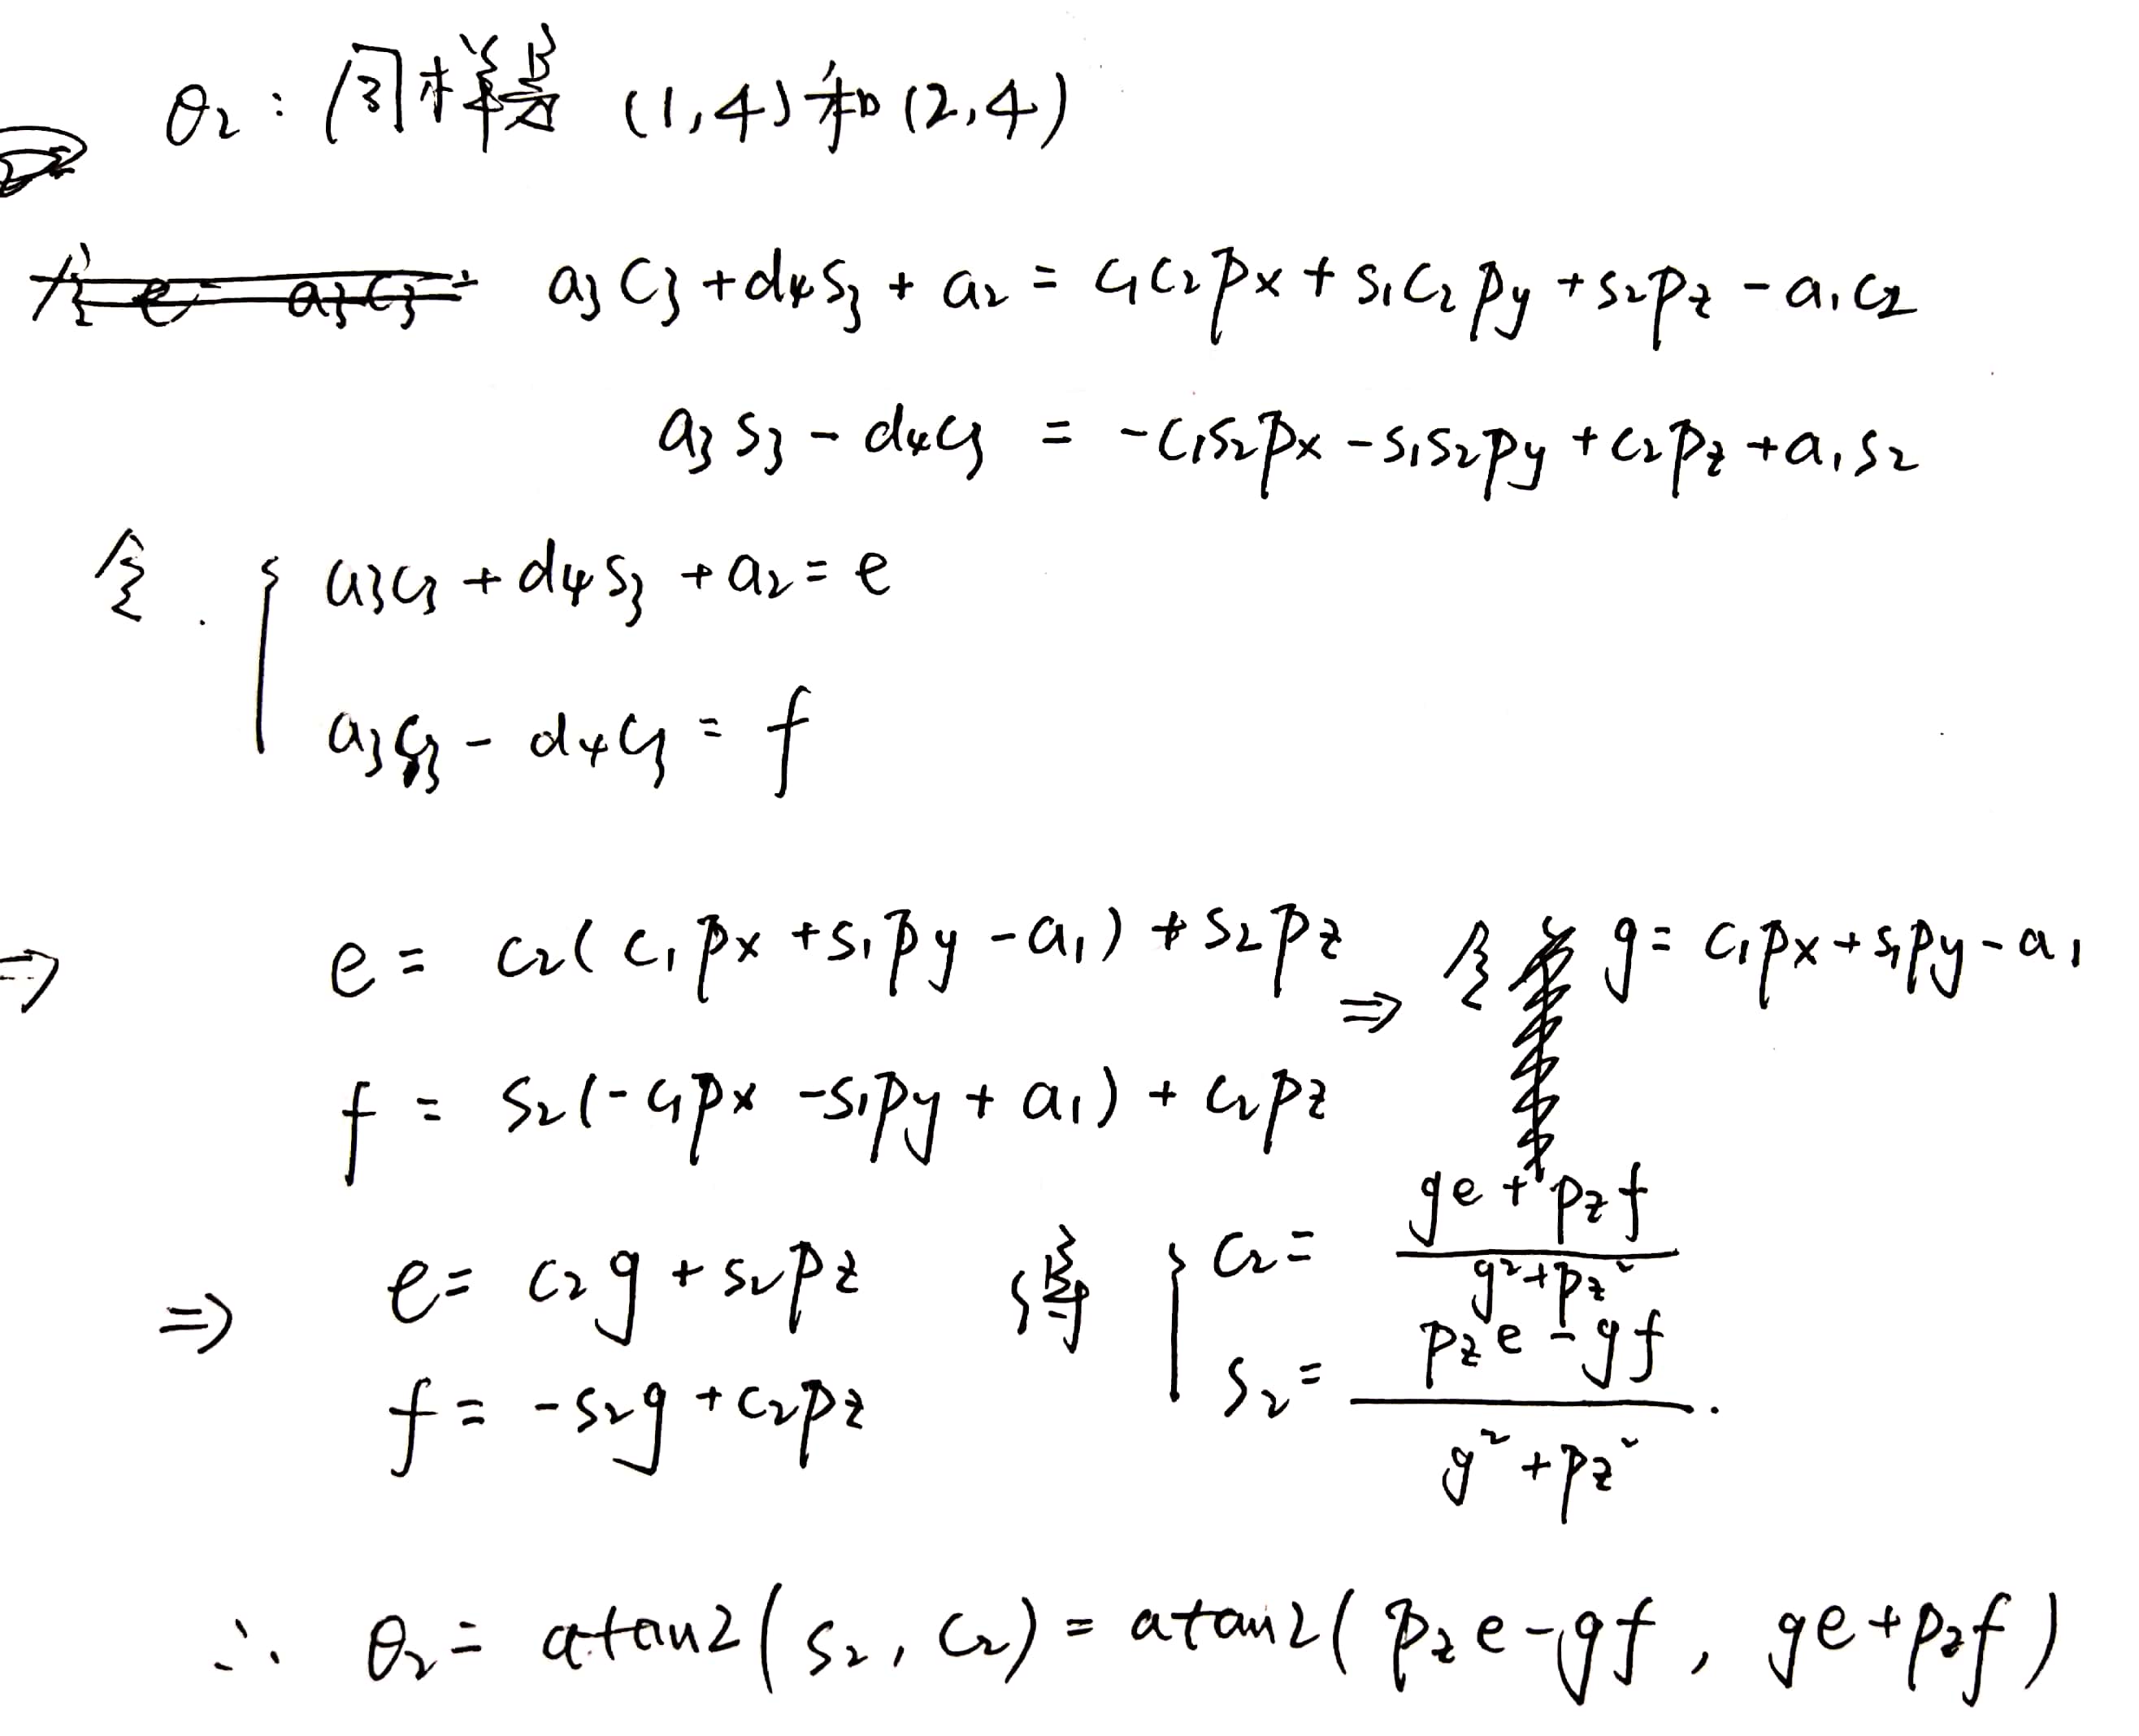 θ₂ : 同样是 (1,4) 和 (2,4)
令 e = a₃c₃ + a₃c₃ + d₄s₃ + a₂ = c₁c₂px + s₁c₂py + s₂pz - a₁c₂
a₃s₃ - d₄c₃ = -c₁s₂px - s₁s₂py + c₂pz + a₁s₂
令 . { a₃c₃ + d₄s₃ + a₂ = e
a₃s₃ - d₄c₃ = f
⇒ e = c₂( c₁px + s₁py - a₁) + s₂pz ⇒ 令 g = c₁px + s₁py - a₁
f = s₂(-c₁px - s₁py + a₁) + c₂pz
⇒ e = c₂g + s₂pz 得 { c₂ = (ge + pzf) / (g² + pz²)
f = -s₂g + c₂pz s₂ = (pze - gf) / (g² + pz²) .
∴ θ₂ = atan2( s₂ , c₂) = atan2( pze - gf , ge + pzf )